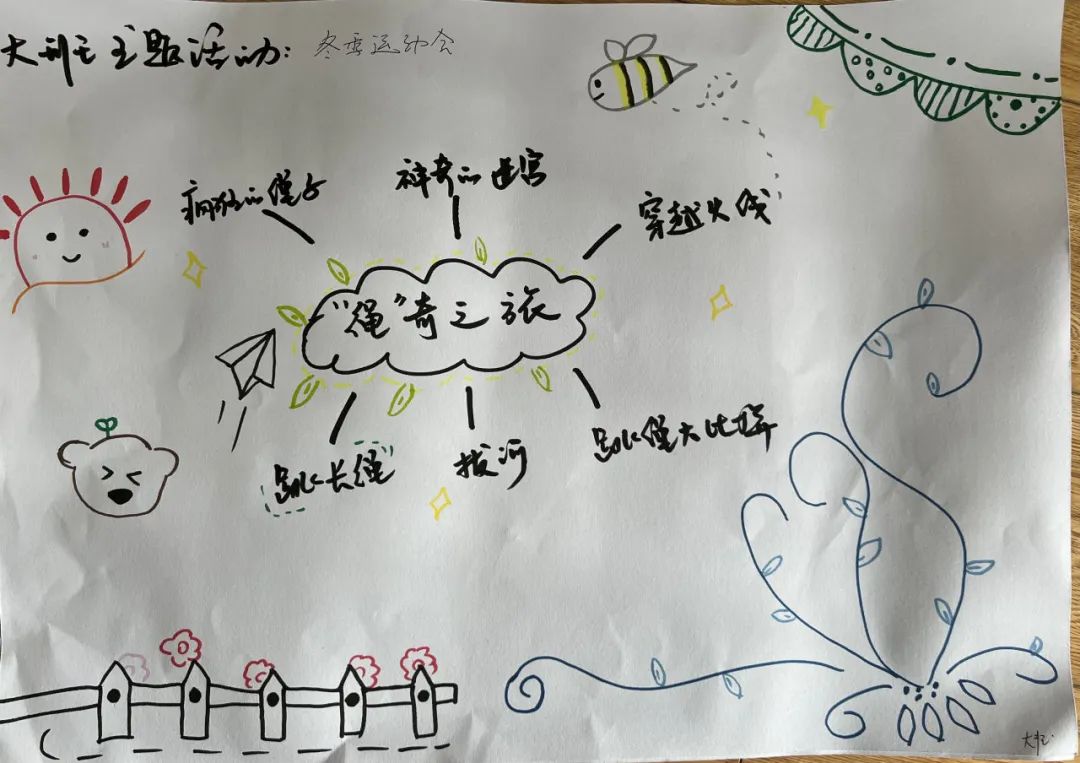 大型主题活动：冬季运动会
疯狂的绳子
神奇的迷宫
穿越火线
“绳”奇之旅
跳长绳
拔河
跳绳大比拼